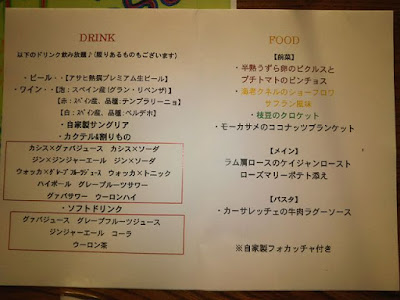 DRINK
以下のドリンク飲み放題♪(限りあるものもございます)
・ビール・・【アサヒ熟撰プレミアム生ビール】
・ワイン・・【泡:スペイン産(グラン・リベンサ)】
【赤:スペイン産、品種:テンプラリーニョ】
【白:スペイン産、品種:ベルデホ】
・自家製サングリア
・カクテル&割りもの
カシス×グァバジュース カシス×ソーダ
ジン×ジンジャーエール ジン×ソーダ
ウォッカ×グレープフルーツジュース ウォッカ×トニック
ハイボール グレープフルーツサワー
グァバサワー ウーロンハイ
・ソフトドリンク
グァバジュース グレープフルーツジュース
ジンジャーエール コーラ
ウーロン茶
FOOD
【前菜】
・半熟うずら卵のピクルスと
プチトマトのピンチョス
・海老クネルのショーフロワ
サフラン風味
・枝豆のクロケット
・モーカサメのココナッツブランケット
【メイン】
ラム肩ロースのケイジャンロースト
ローズマリーポテト添え
【パスタ】
・カーサレッチェの牛肉ラグーソース
※自家製フォカッチャ付き